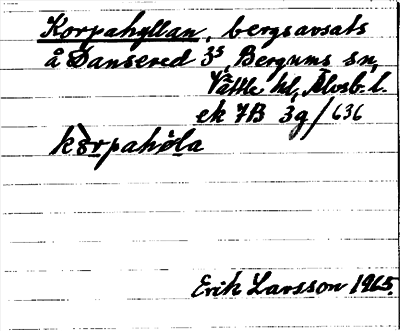 Korpahyllan, bergsavsats
å Dansered 3⁵, Bergums sn,
Vättle hd, Älvsb. l.
ek 7B 3g/636
kòrpahø̀la
Erik Larsson 1965